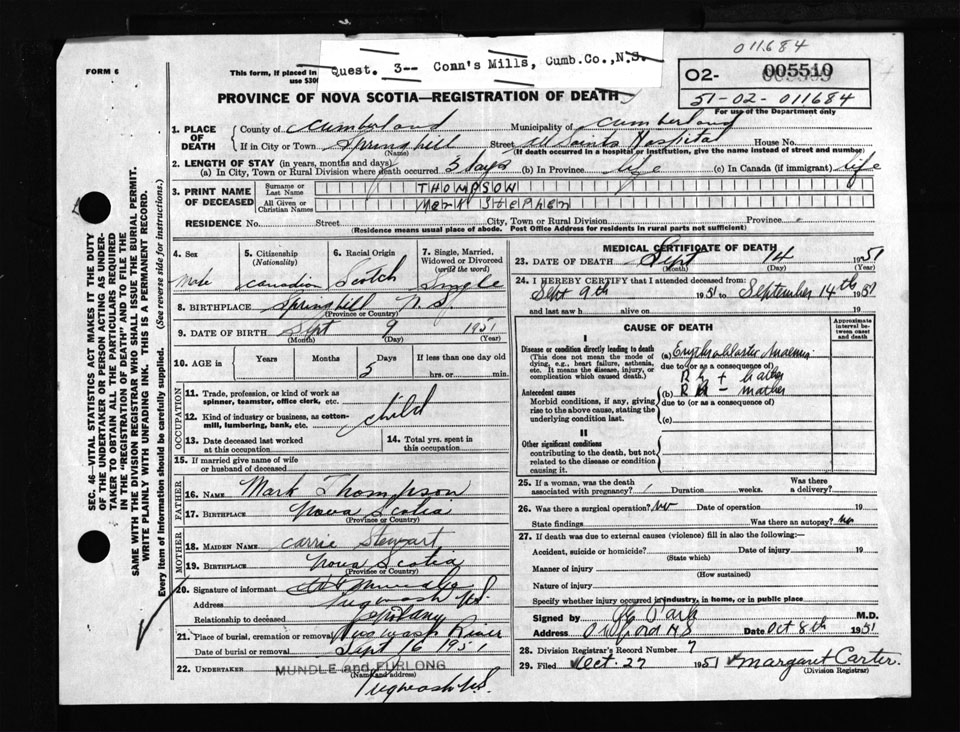 011684
FORM 6
This form, if placed in
use $300
Quest. 3-- Conn's Mills, Cumb.Co.,N.S.
O2- 005510
51-02-011684
For use of the Department only
PROVINCE OF NOVA SCOTIA—REGISTRATION OF DEATH
1. PLACE OF DEATH
County of Cumberland Municipality of Cumberland
If in City or Town Springhill Street All Saints Hospital House No.
(Name) (If death occurred in a hospital or institution, give the name instead of street and number)
2. LENGTH OF STAY (in years, months and days)
(a) In City, Town or Rural Division where death occurred 5 days (b) In Province life (c) In Canada (if immigrant) life
3. PRINT NAME OF DECEASED
Surname or Last Name THOMPSON
All Given or Christian Names Mark Stephen
RESIDENCE No. Street City, Town or Rural Division Province
(Residence means usual place of abode. Post Office Address for residents in rural parts not sufficient)
4. Sex Male
5. Citizenship (Nationality) Canadian
6. Racial Origin Scotch
7. Single, Married, Widowed or Divorced (write the word) Single
8. BIRTHPLACE Springhill N.S.
(Province or Country)
9. DATE OF BIRTH Sept 9 1951
(Month) (Day) (Year)
10. AGE in Years Months Days If less than one day old
5 hrs. or min.
OCCUPATION
11. Trade, profession, or kind of work as spinner, teamster, office clerk, etc.
12. Kind of industry or business, as cotton-mill, lumbering, bank, etc.
child
13. Date deceased last worked at this occupation
14. Total yrs. spent in this occupation
15. If married give name of wife or husband of deceased
FATHER
16. NAME Mark Thompson
17. BIRTHPLACE Nova Scotia
(Province or Country)
MOTHER
18. MAIDEN NAME Carrie Stewart
19. BIRTHPLACE Nova Scotia
(Province or Country)
20. Signature of informant
Address Pugwash N.S.
Relationship to deceased
21. Place of burial, cremation or removal Pugwash River
Date of burial or removal Sept 16 1951
22. UNDERTAKER MUNDLE and FURLONG
(Name and address)
Pugwash N.S.
MEDICAL CERTIFICATE OF DEATH
23. DATE OF DEATH Sept 14 1951
(Month) (Day) (Year)
24. I HEREBY CERTIFY that I attended deceased from
Sept 9th 1951 to September 14th 1951
and last saw h alive on 19
CAUSE OF DEATH
Approximate interval between onset and death
I
Disease or condition directly leading to death
(This does not mean the mode of dying, e.g., heart failure, asthenia, etc. It means the disease, injury, or complication which caused death.)
(a)
due to (or as a consequence of)
Rh + father
Antecedent causes
Morbid conditions, if any, giving rise to the above cause, stating the underlying condition last.
(b) Rh - mother
due to (or as a consequence of)
(c)
II
Other significant conditions
contributing to the death, but not related to the disease or condition causing it.
25. If a woman, was the death associated with pregnancy? Duration weeks. Was there a delivery?
26. Was there a surgical operation? no Date of operation 19
State findings Was there an autopsy? no
27. If death was due to external causes (violence) fill in also the following:—
Accident, suicide or homicide? Date of injury 19
(State which)
Manner of injury
(How sustained)
Nature of injury
Specify whether injury occurred in industry, in home, or in public place
Signed by M.D.
Address Oxford N.S. Date Oct 8th 1951
28. Division Registrar's Record Number 7
29. Filed Oct. 27 1951 Margaret Carter.
(Division Registrar)
SEC. 46—VITAL STATISTICS ACT MAKES IT THE DUTY
OF THE UNDERTAKER OR PERSON ACTING AS UNDER-
TAKER TO OBTAIN ALL THE PARTICULARS REQUIRED
IN THE "REGISTRATION OF DEATH" AND TO FILE THE
SAME WITH THE DIVISION REGISTRAR WHO SHALL ISSUE THE BURIAL PERMIT.
WRITE PLAINLY WITH UNFADING INK. THIS IS A PERMANENT RECORD.
Every item of Information should be carefully supplied. (See reverse side for instructions.)